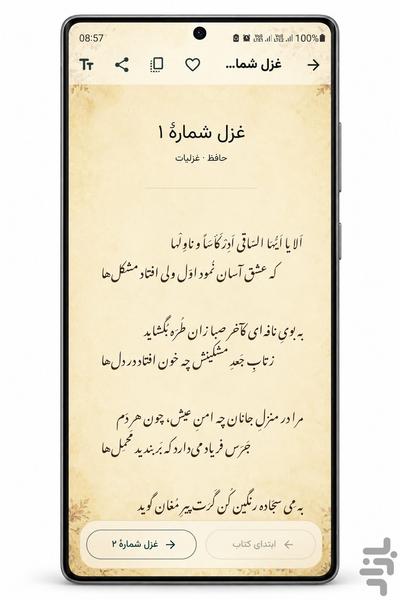 08:57
100%
غزل شما...
غزل شمارهٔ ۱
حافظ · غزلیات
اَلا یا اَیُّهَا السّاقی اَدِرْ کَأسَاً و ناوِلْها
که عشق آسان نُمود اوّل ولی افتاد مشکل‌ها
به بویِ نافه‌ای کآخر صبا زان طُرّه بُگشاید
ز تابِ جَعدِ مشکینش چه خون افتاد در دل‌ها
مرا در منزلِ جانان چه امنِ عیش، چون هر دَم
جَرَس فریاد می‌دارد که بَربندید مَحمِل‌ها
به مِی سَجّاده رنگین کُن گَرَت پیرِ مُغان گوید
ابتدای کتاب
غزل شمارهٔ ۲
بازار